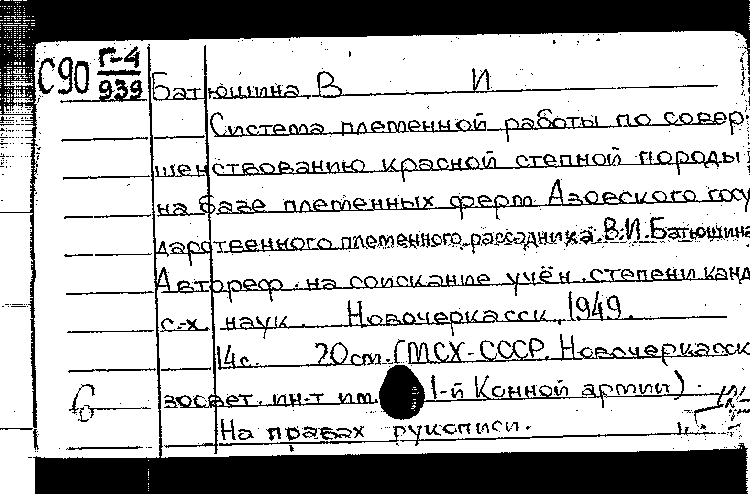 С90 Г-4
939
Батюшина В И
Система племенной работы по совер-
шенствованию красной степной породы
на базе племенных ферм Азовского госу
дарственного племенного рассадника. В.И. Батюшина
Автореф. на соискание учён. степени канд
с-х. наук. Новочеркасск, 1949.
14с. 20см. (МСХ-СССР. Новочеркасск
зоовет. ин-т им. 1-й Конной армии).
6
На правах рукописи.